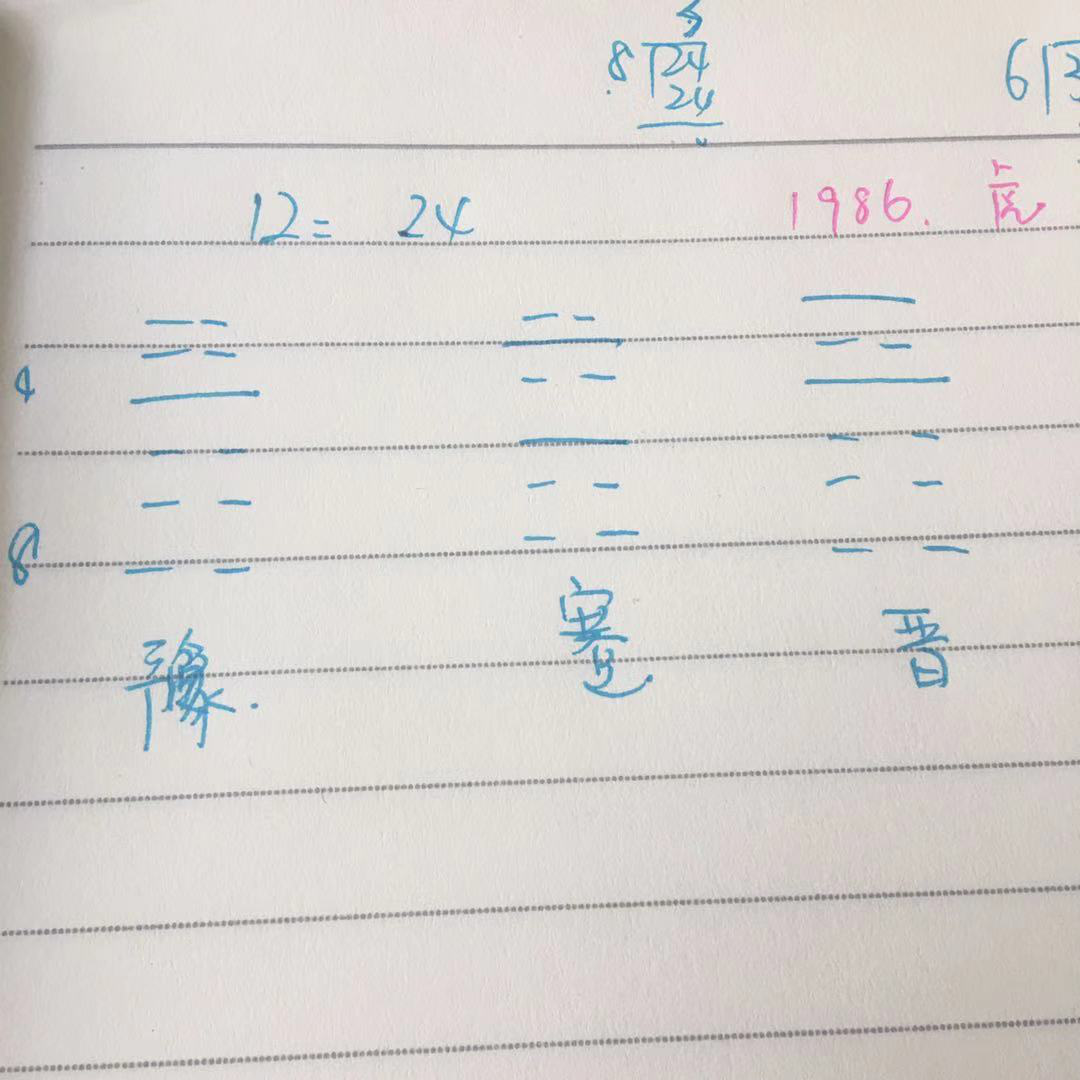 8 24 6
24
12= 24 1986. 虎
4
8
豫. 蹇. 晋